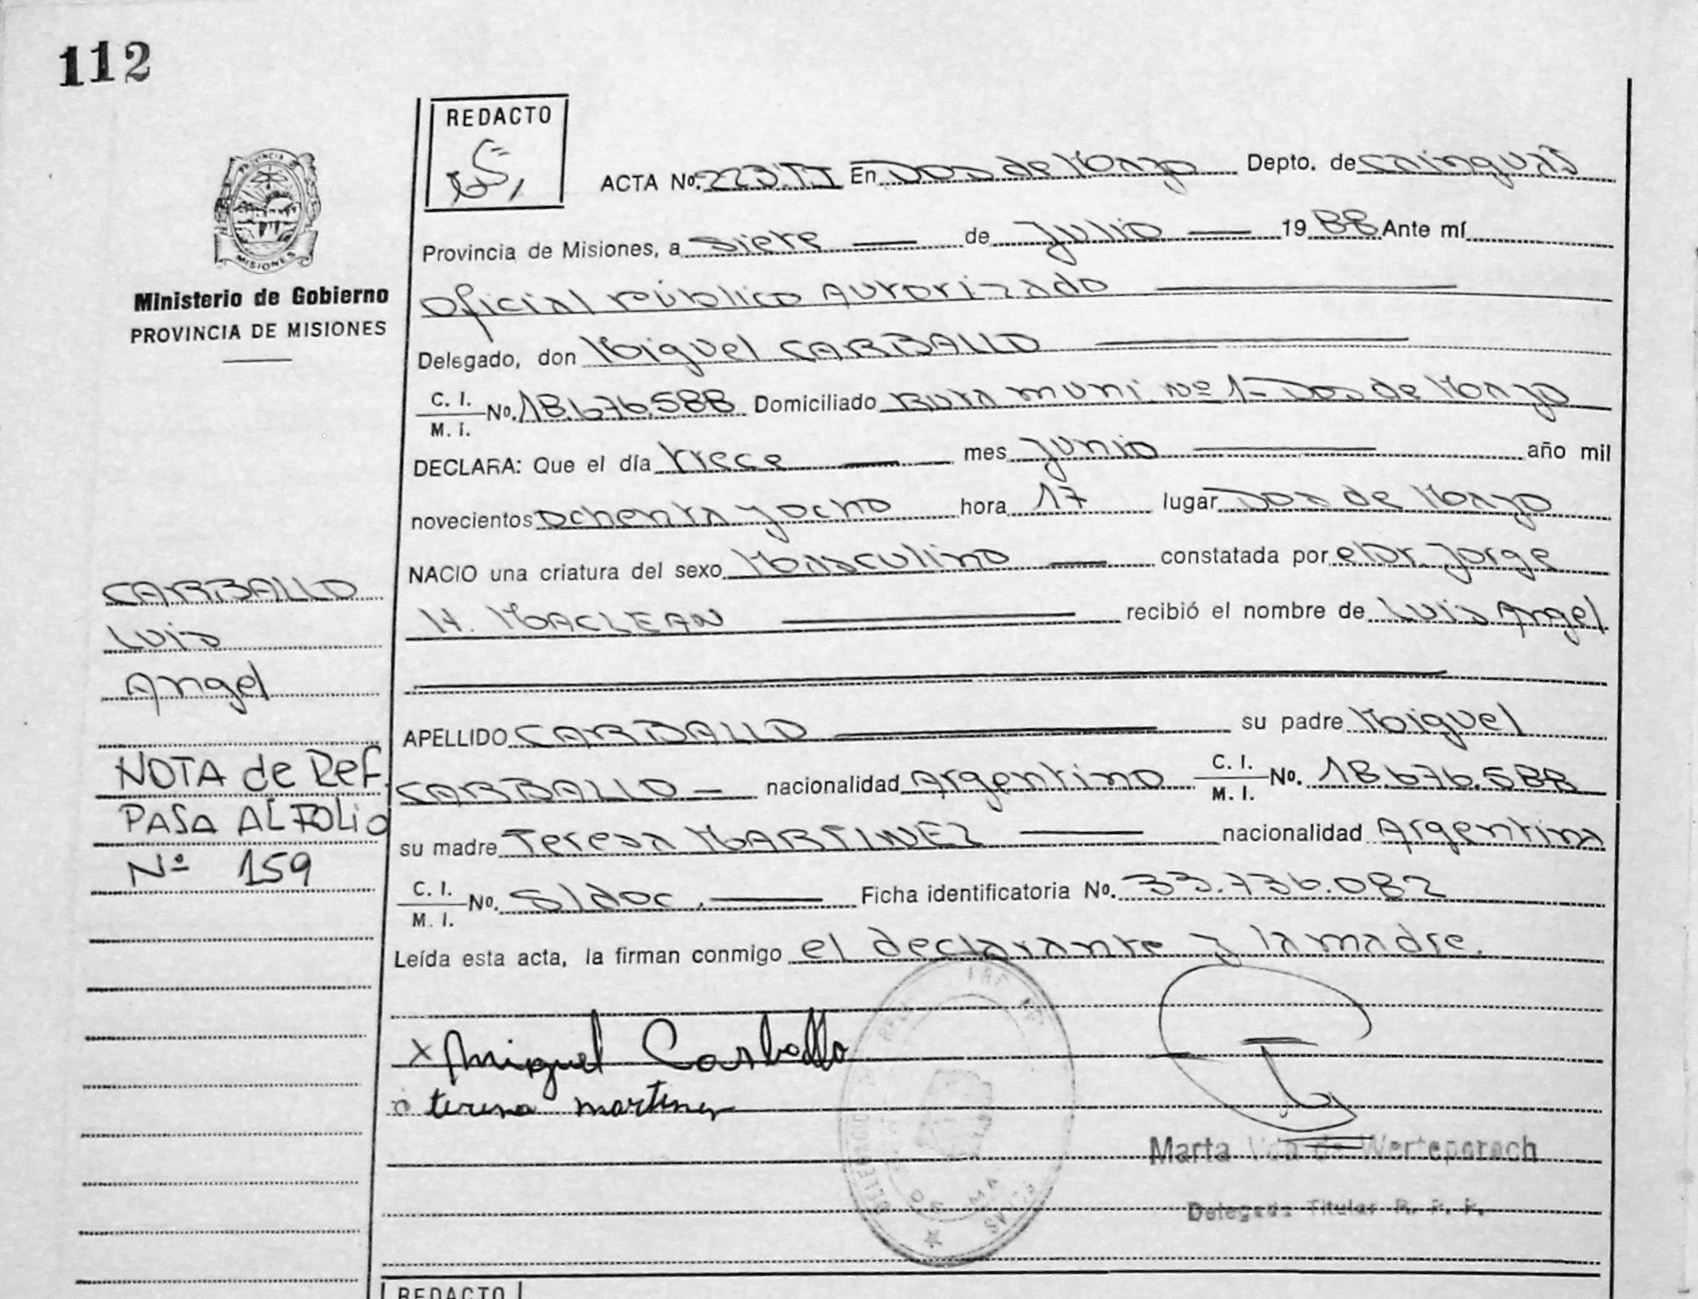 112
REDACTO
ACTA No. 223.TI En Dos de Mayo Depto. de Cainguás
PROVINCIA DE
MISIONES
Ministerio de Gobierno
PROVINCIA DE MISIONES
Provincia de Misiones, a siete de Julio 1988 Ante mí
Oficial Público Autorizado
Delegado, don Miguel CARBALLO
C. I. / M. I. No. 18.676.588 Domiciliado Ruta muni. Nº 1- Dos de Mayo
DECLARA: Que el día trece mes Junio año mil
novecientos ochenta y ocho hora 17 lugar Dos de Mayo
NACIO una criatura del sexo Masculino constatada por el Dr. Jorge
H. MACLEAN recibió el nombre de Luis Angel
CARBALLO
Luis
Angel
APELLIDO CARBALLO su padre Miguel
CARBALLO - nacionalidad Argentino C. I. / M. I. No. 18.676.588
su madre Teresa MARTINEZ nacionalidad Argentina
C. I. / M. I. No. S/doc. Ficha identificatoria No. 33.736.082
Leída esta acta, la firman conmigo el declarante y la madre.
NOTA de Ref.
PASA AL FOLIO
Nº 159
x Miguel Carballo
teresa martinez
Marta Vda de Werteparach
Delegada Titular R. P. P.
REDACTO